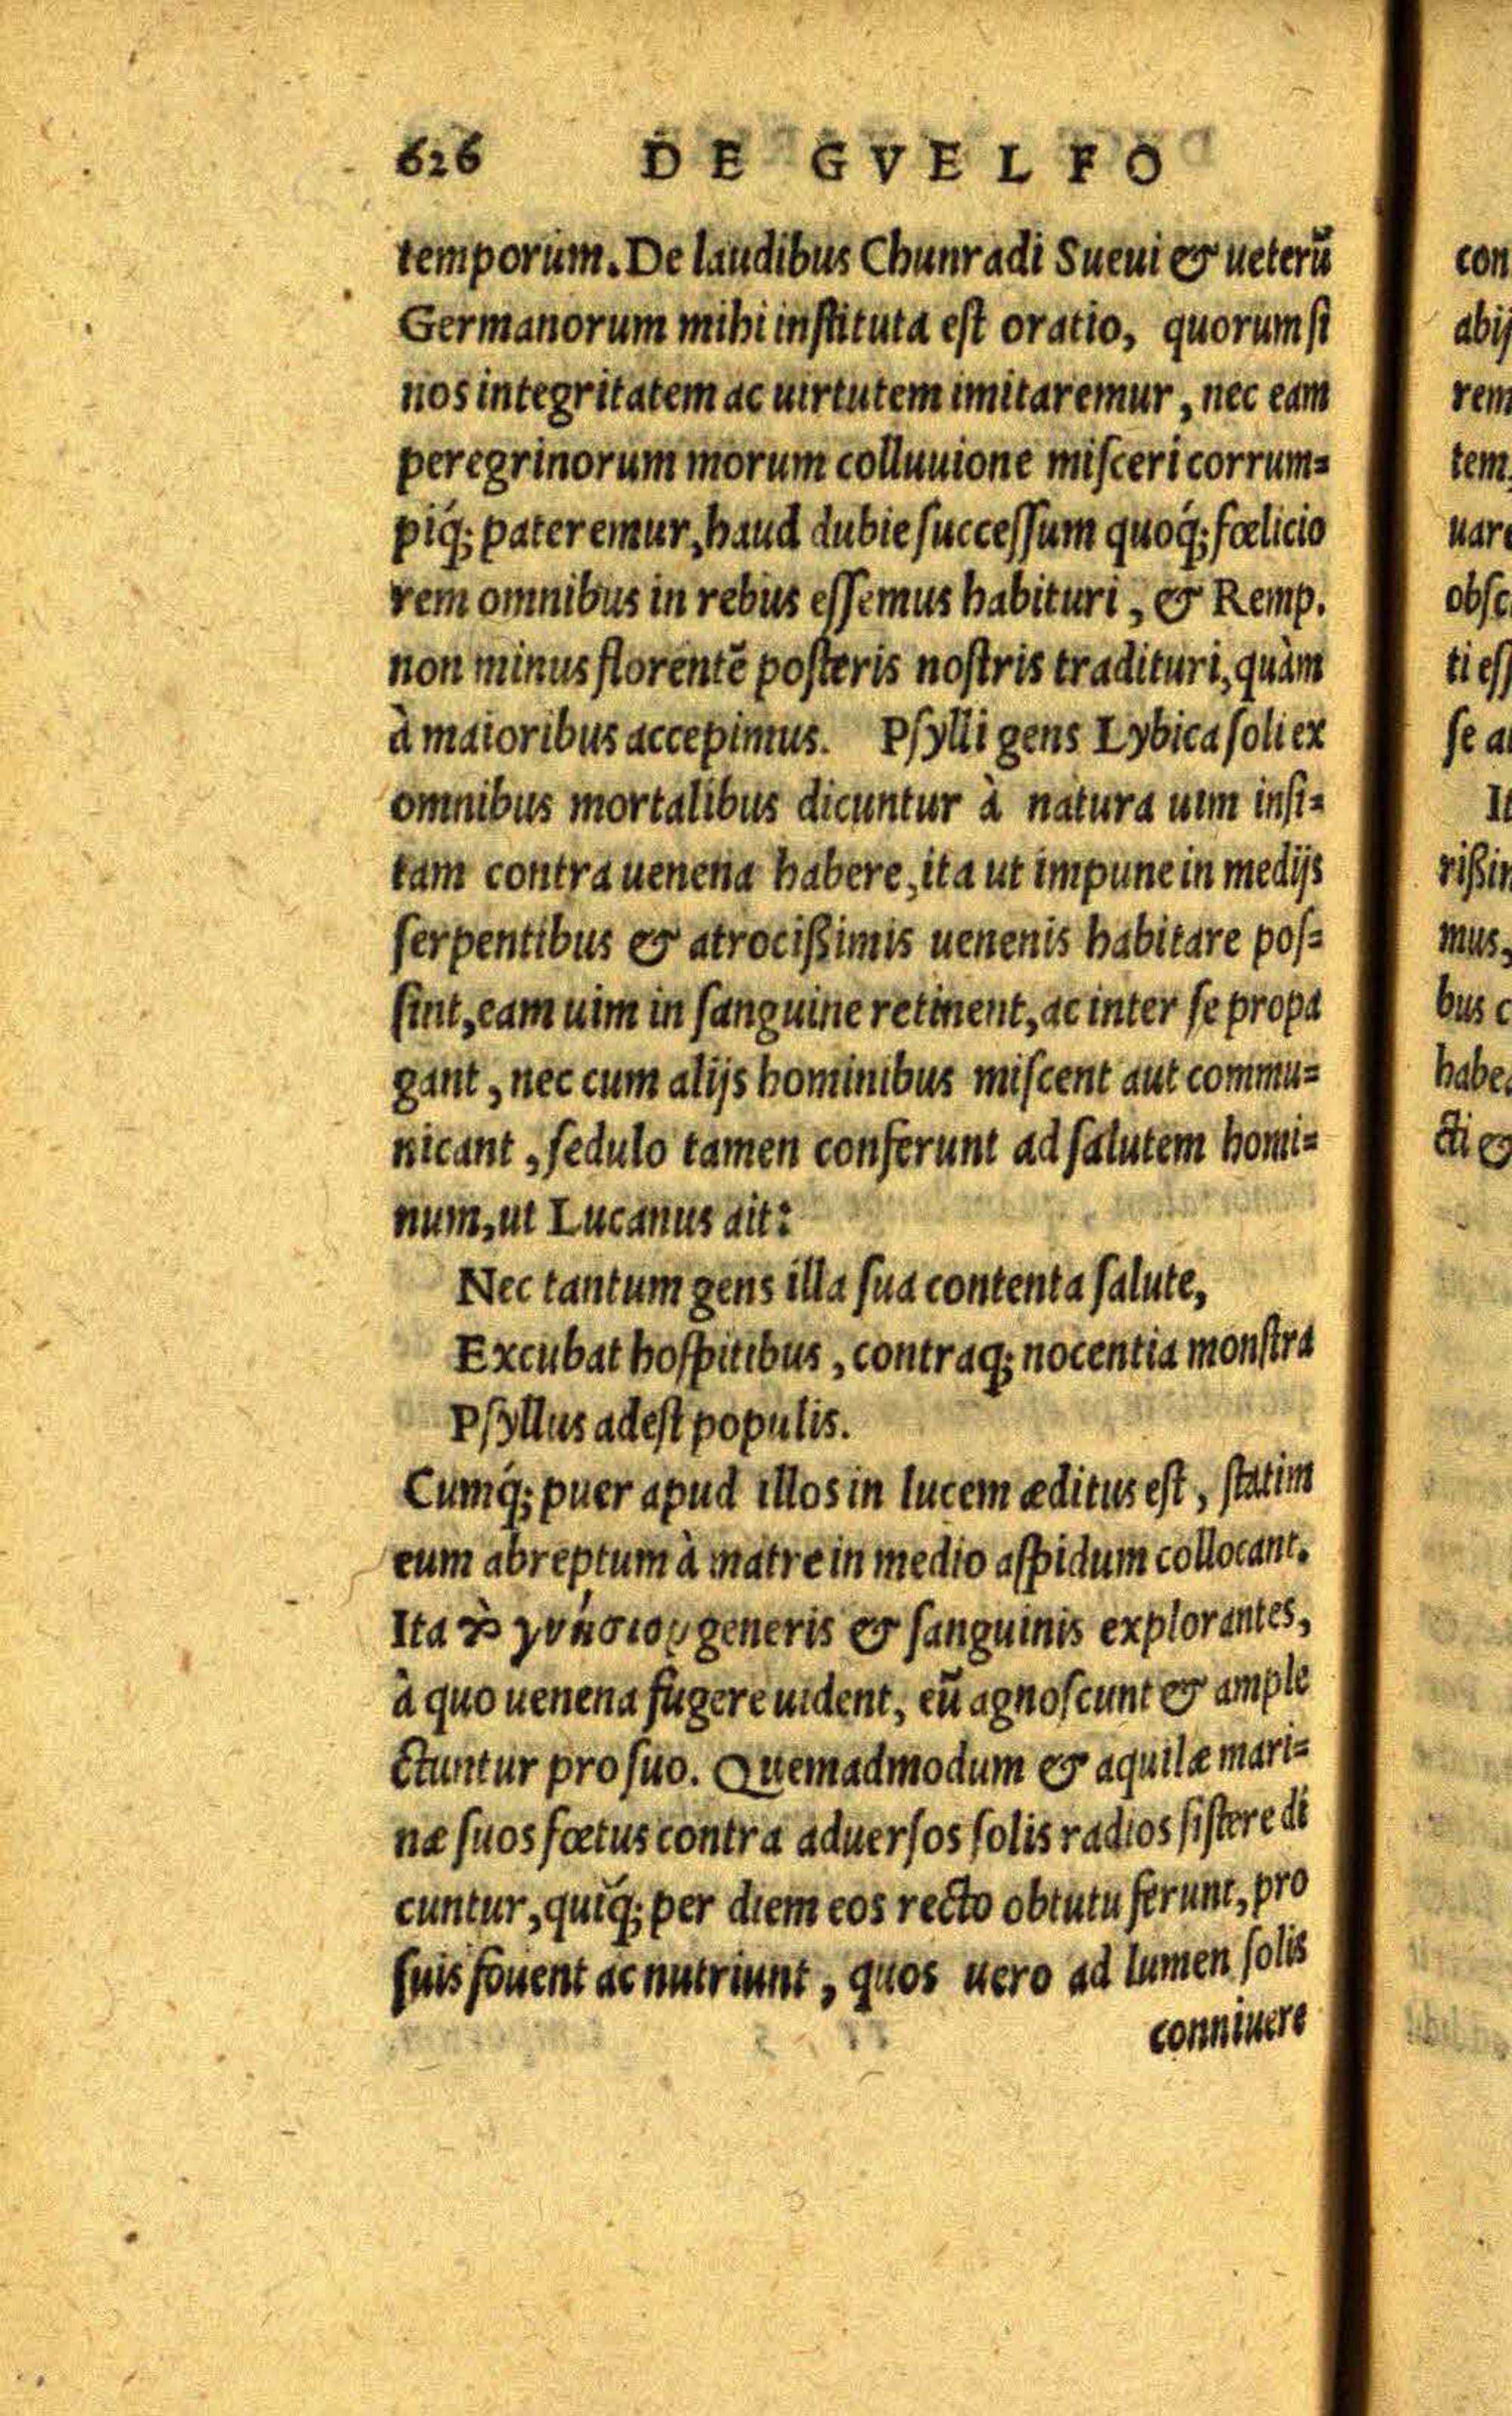 626 DE GVELFO
temporum. De laudibus Chunradi Sueui & ueterũ
Germanorum mihi instituta est oratio, quorum si
nos integritatem ac uirtutem imitaremur, nec eam
peregrinorum morum colluuione misceri corrum=
piq́; pateremur, haud dubie successum quoq́; fœlicio
rem omnibus in rebus essemus habituri, & Remp.
non minus florentẽ posteris nostris tradituri, quàm
à maioribus accepimus. Psylli gens Lybica soli ex
omnibus mortalibus dicuntur à natura uim insi=
tam contra uenena habere, ita ut impune in medijs
serpentibus & atrocißimis uenenis habitare pos=
sint, eam uim in sanguine retinent, ac inter se propa
gant, nec cum alijs hominibus miscent aut commu=
nicant, sedulo tamen conferunt ad salutem homi=
num, ut Lucanus ait:
Nec tantum gens illa sua contenta salute,
Excubat hospitibus, contraq; nocentia monstra
Psyllus adest populis.
Cumq́; puer apud illos in lucem æditus est, statim
eum abreptum à matre in medio aspidum collocant.
Ita τὸ γνήσιον generis & sanguinis explorantes,
à quo uenena fugere uident, eũ agnoscunt & ample
ctuntur pro suo. Quemadmodum & aquilæ mari=
næ suos fœtus contra aduersos solis radios sistere di
cuntur, quiq́; per diem eos recto obtutu ferunt, pro
suis fouent ac nutriunt, quos uero ad lumen solis
conniuere
con
abij
rem
tem
uar
obsc
ti ess
se a
It
rißin
mus,
bus c
habe
cti &